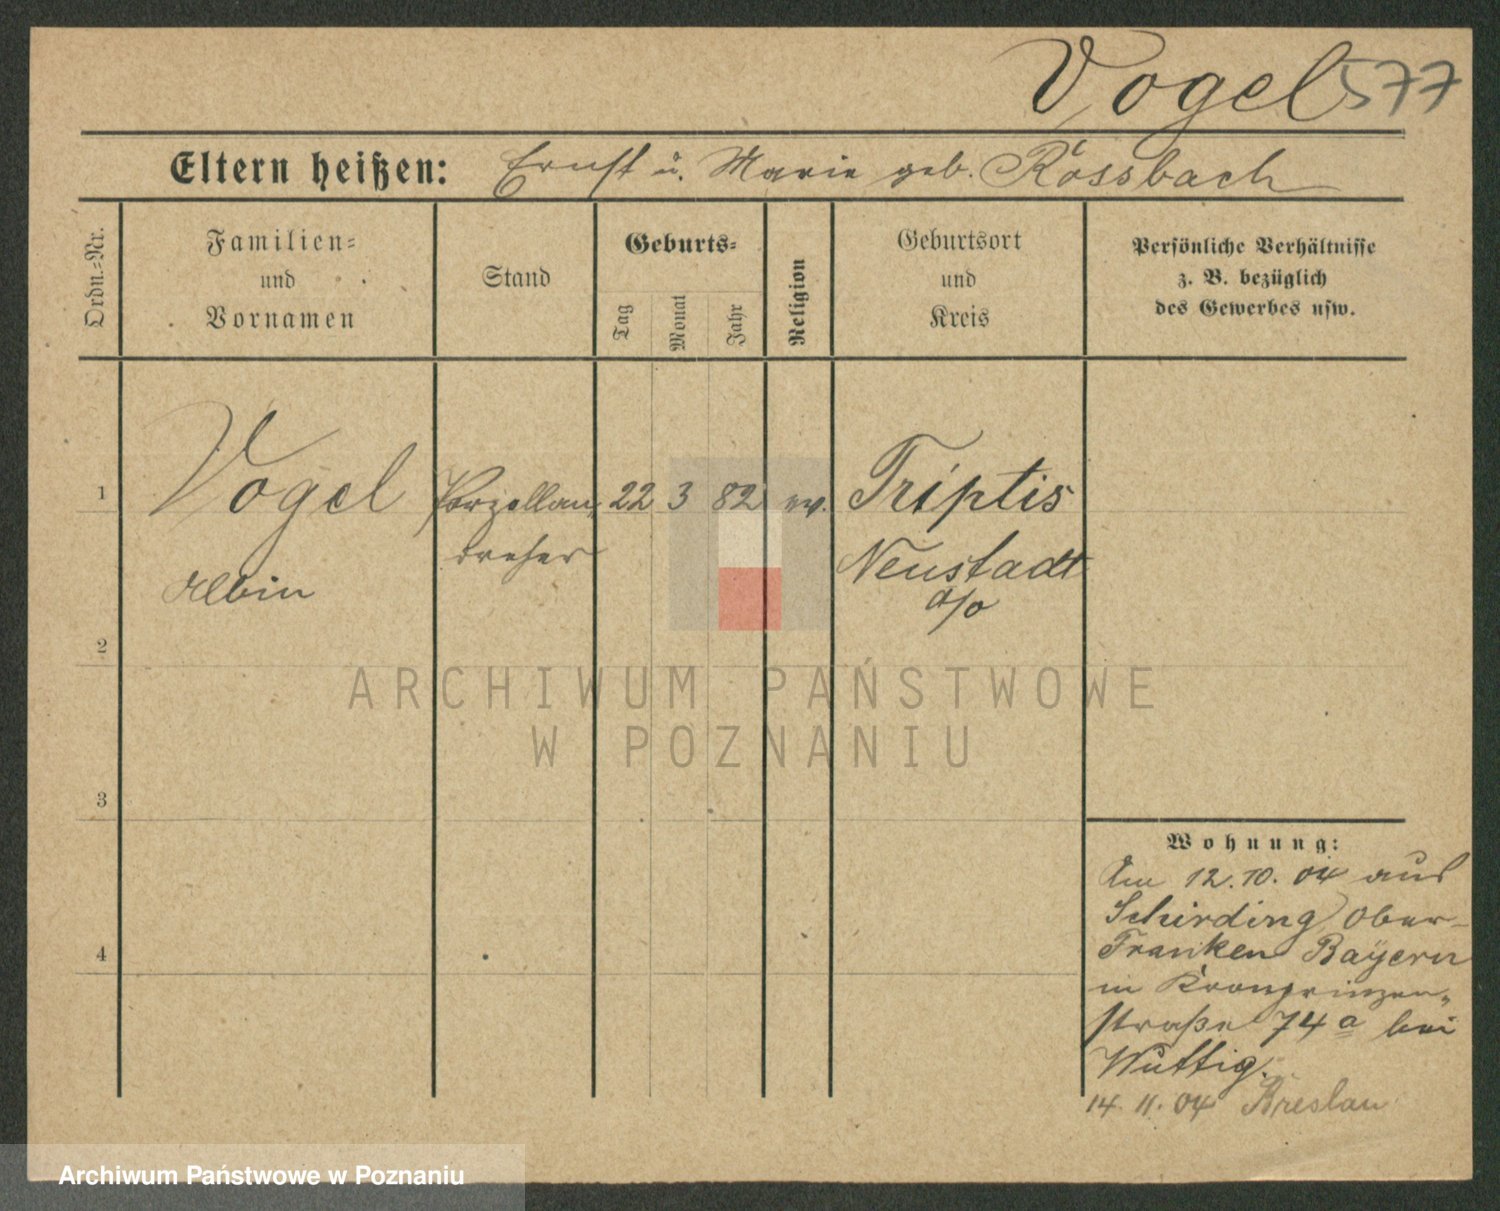 Vogel 577
Eltern heißen: Ernst u. Marie geb. Rossbach
Ordn.=Nr.
Familien=
und
Vornamen
Stand
Geburts=
Tag
Monat
Jahr
Religion
Geburtsort
und
Kreis
Persönliche Verhältnisse
z. B. bezüglich
des Gewerbes usw.
1 Vogel Porzellan= 22 3 82 ev. Triptis
dreher Neustadt
Albin a/o
2
3
4
Wohnung:
Am 12.10.04 aus
Schirding Ober-
Franken Bayern
in Kronprinzen=
straße 74a bei
Wuttig.
14.11.04 Breslau
ARCHIWUM PAŃSTWOWE
W POZNANIU
Archiwum Państwowe w Poznaniu